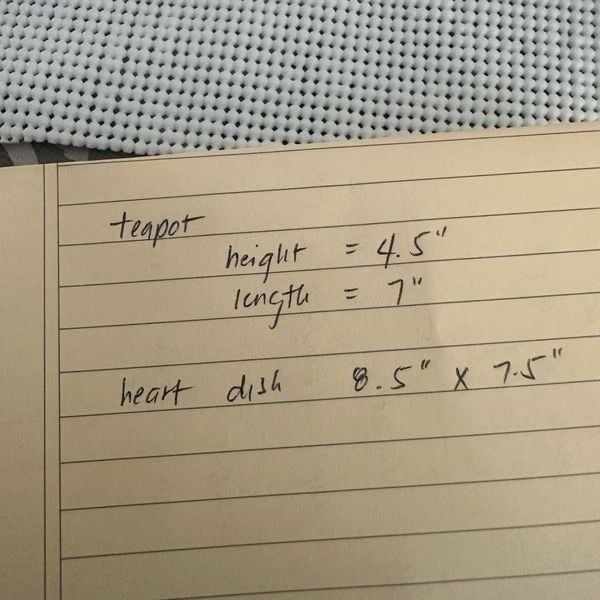 teapot
height = 4.5"
length = 7"
heart dish 8.5" x 7.5"